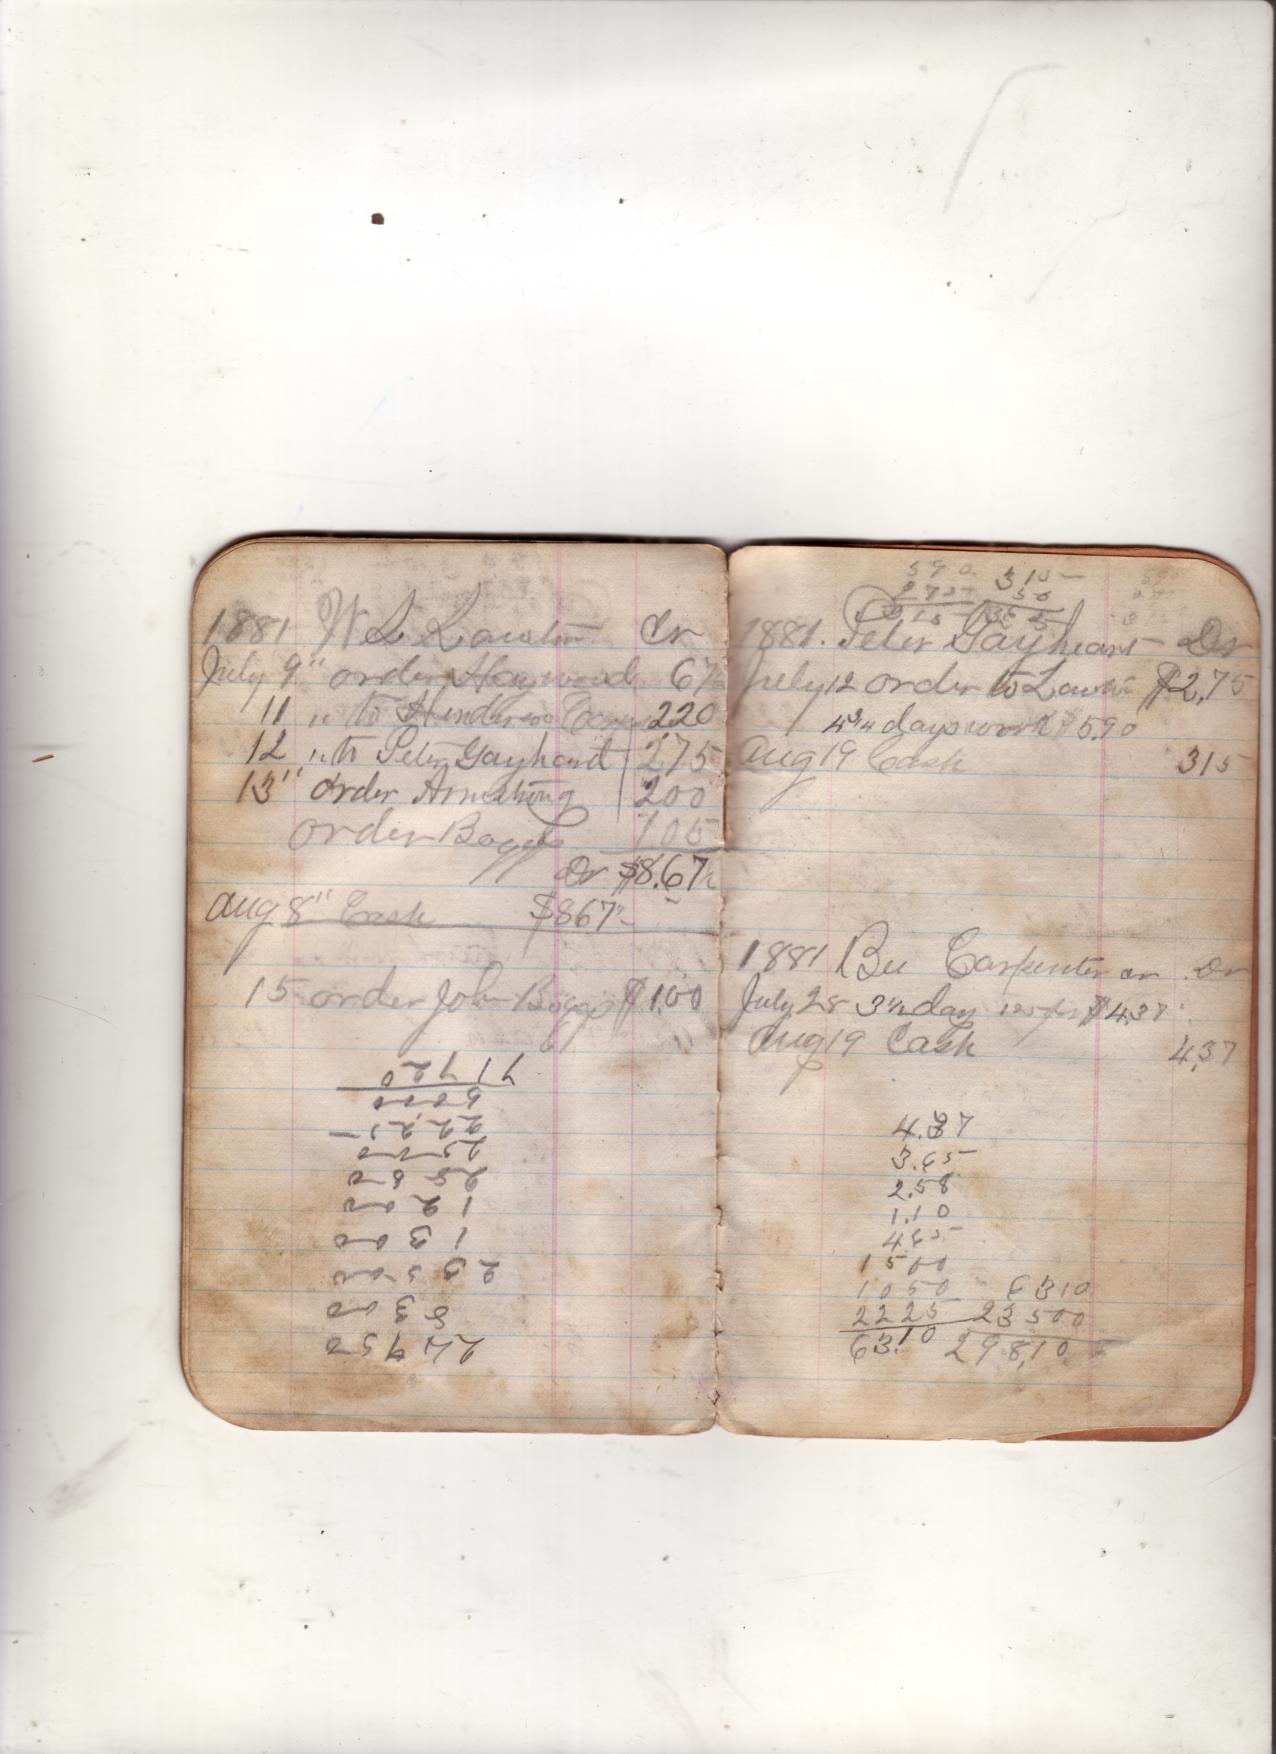 1881 W L Lawton Cr
July 9" order Haywood 67½
11 " to Henderson 220
12 " to Peter Gayheart 275
13" order Armstrong 200
order Boggs 105
Dr $8.67½
Aug 8" Cash $867½
15 order John Boggs $1.00
71720
5000
2225
2500
2580
1200
1300
23500
8300
590
315
50
315
365
1881. Peter Gayheart Dr
July 12 order to Lawton $2.75
4¾ days work $5.90
Aug 19 Cash 315
1881 Bee Carpenter cr Dr
July 28 3½ day $4.37
Aug 19 Cash 4.37
4.37
3.65
2.58
1.10
465
1500
1050 6310
2225 23500
63.10 298.10